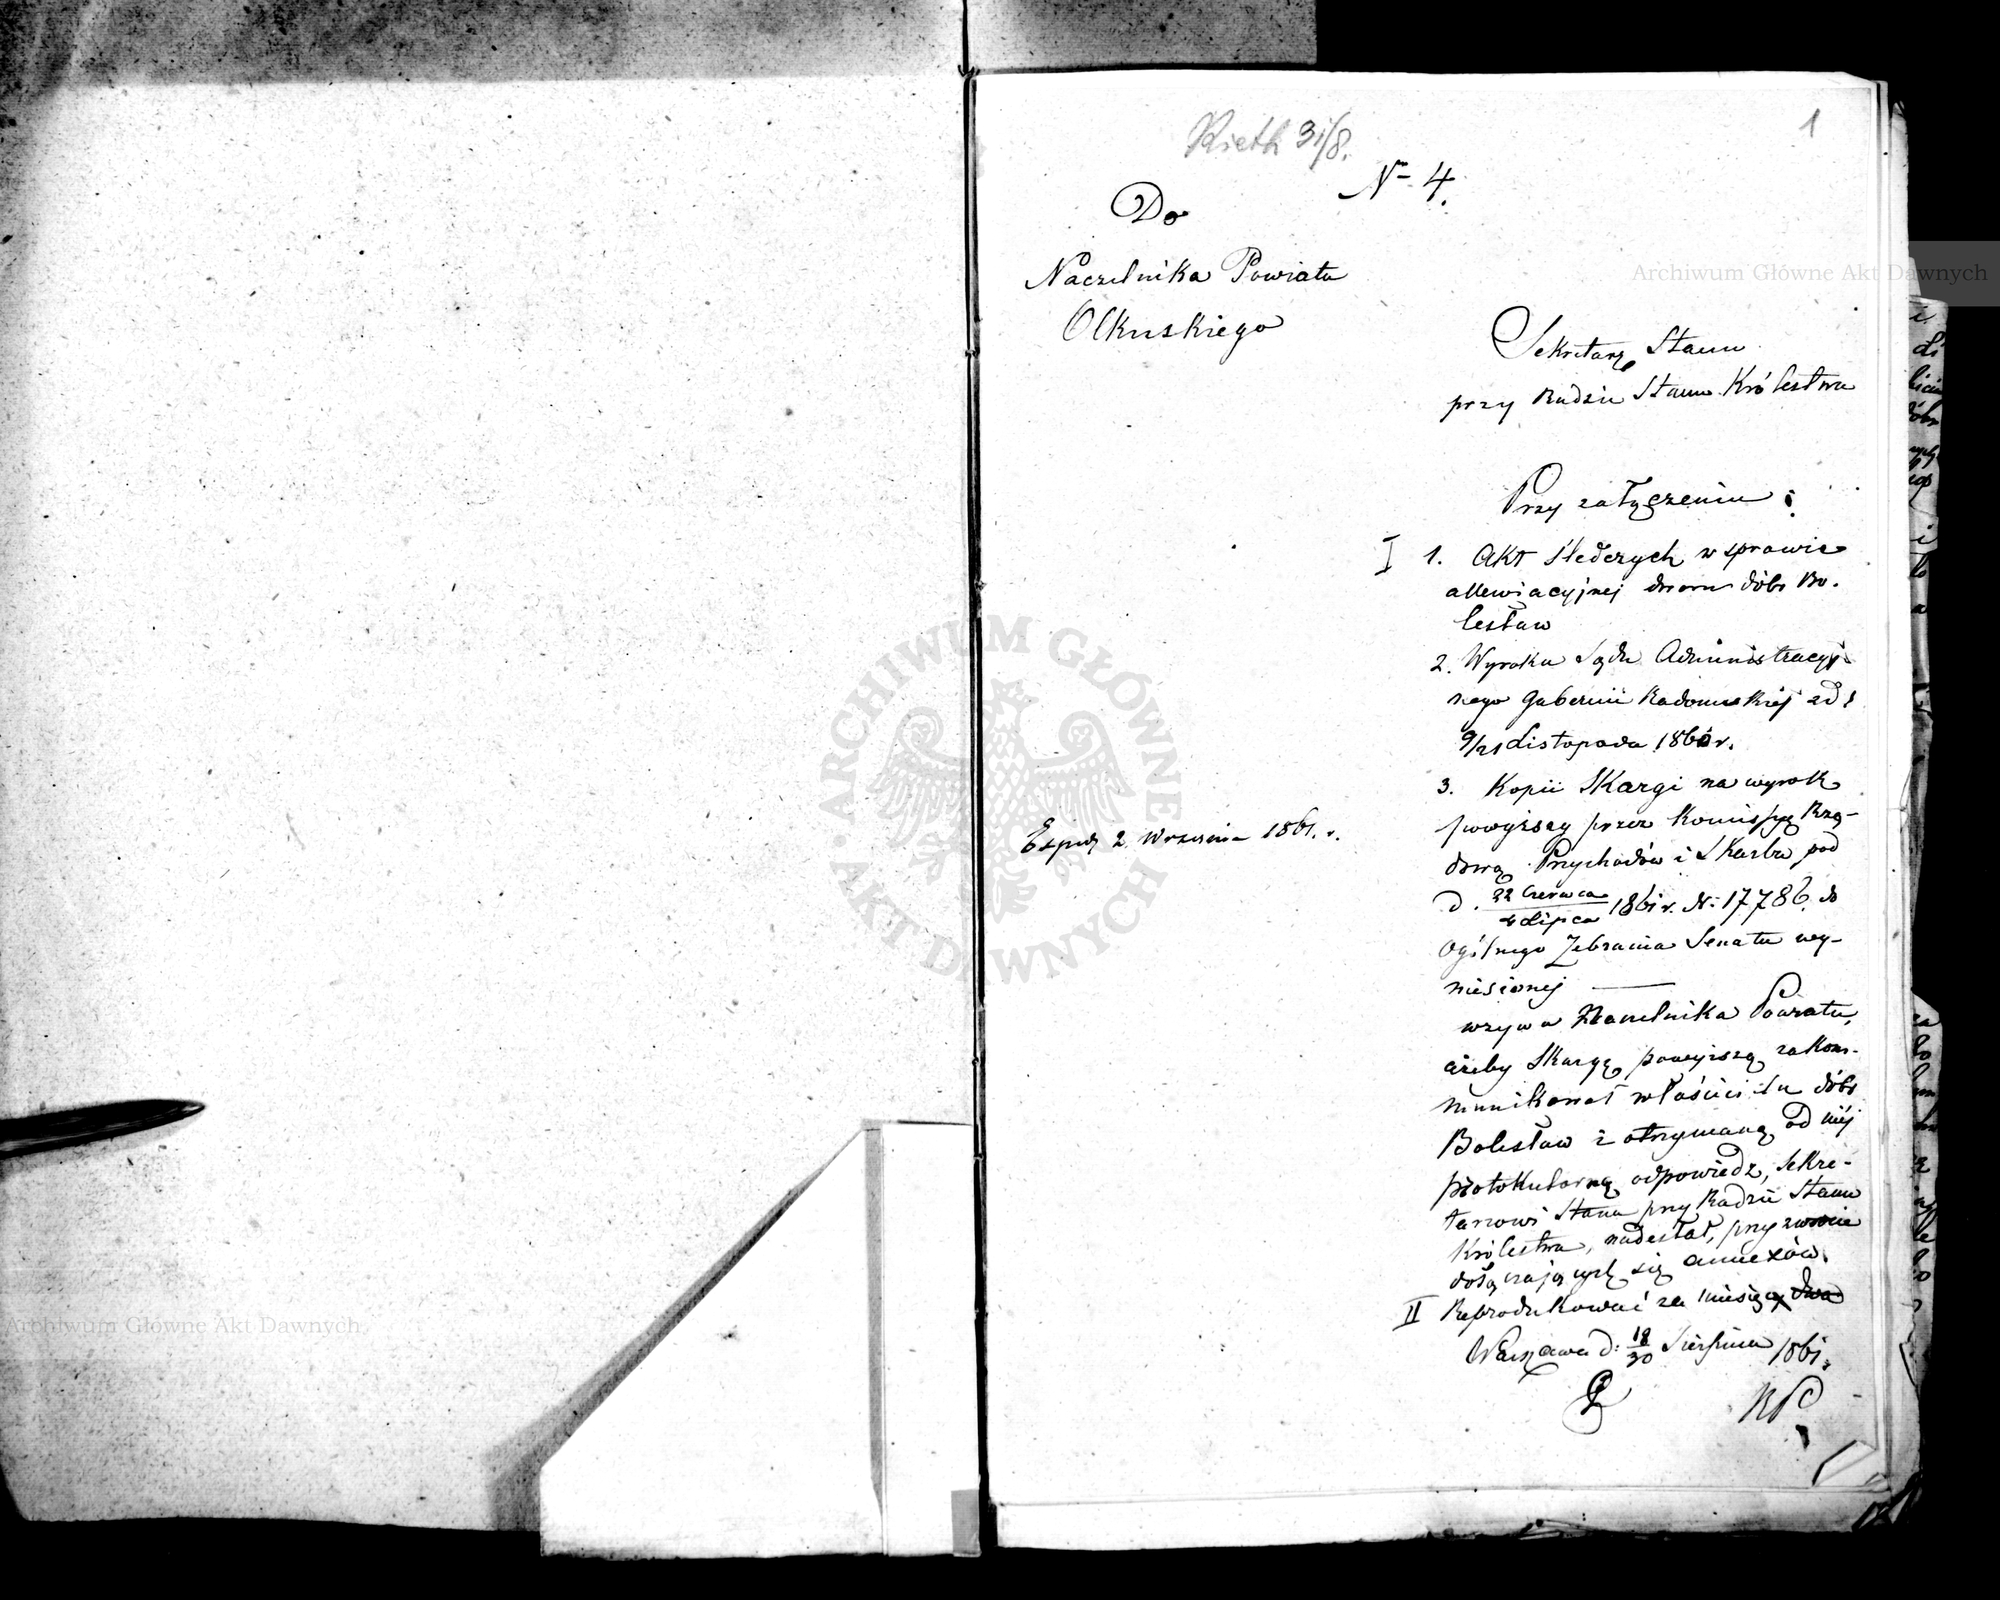 1
Rieth 31/8.
Nr 4.
Do
Naczelnika Powiatu
Olkuskiego
Sekretarz Stanu
przy Radzie Stanu Królestwa
Przy załączeniu :
I 1. Akt śledczych w sprawie
allewiacyjnej dworu dóbr Bo-
lesław
2. Wyroku Sądu Administracyj-
nego Gubernii Radomskiej z d.
9/21 Listopada 1860 r.
3. Kopii Skargi na wyrok
powyższy przez Komissyę Rzą-
dową Przychodów i Skarbu pod
d. 22 Czerwca / 4 Lipca 1861 r. N: 17786 do
Ogólnego Zebrania Senatu wy-
niesionej
wzywa Naczelnika Powiatu,
ażeby Skargę powyższą zakom-
munikował właścicielu dóbr
Bolesław i otrzymaną od niej
protokularną odpowiedź, Sekre-
tarzowi Stanu przy Radzie Stanu
Królestwa, nadesłał, przy zwrocie
dołączających się annexów.
II Reprodukować za miesiący dwa
Warszawa d: 18/30 Sierpnia 1861.
Exped 2 Września 1861. r.
Archiwum Główne Akt Dawnych
ARCHIWUM GŁÓWNE AKT DAWNYCH
Archiwum Główne Akt Dawnych